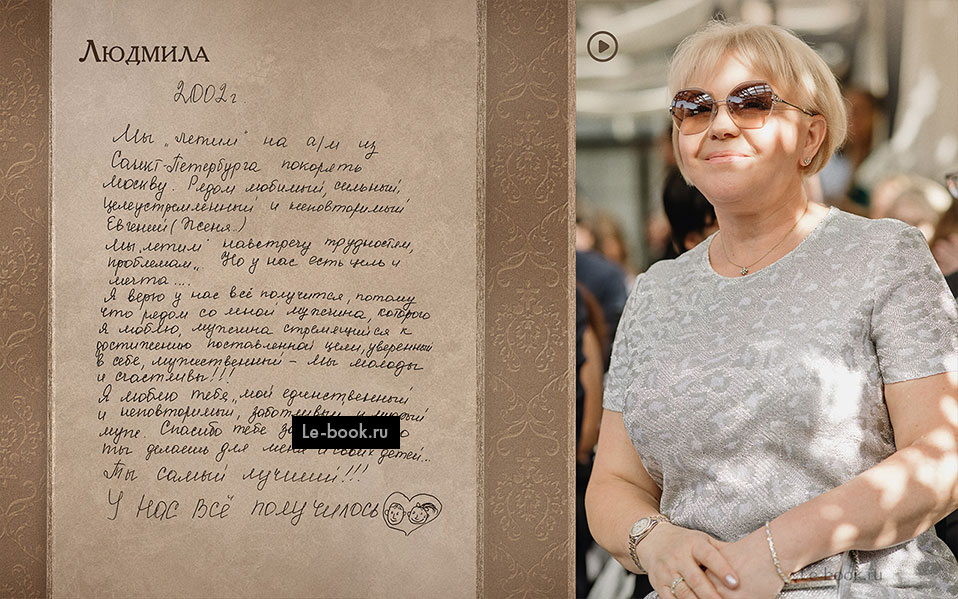 Людмила
2002г
Мы „летим" на а/м из
Санкт-Петербурга покорять
Москву. Рядом любимый, сильный,
целеустремлённый и неповторимый
Евгений (Женя.)
Мы „летим" навстречу трудностям,
проблемам„ Но у нас есть цель и
мечта....
Я верю у нас всё получится, потому
что рядом со мной мужчина, которого
я люблю, мужчина стремящийся к
достижению поставленной цели, уверенный
в себе, мужественный – мы молоды
и счастливы!!!
Я люблю тебя „мой единственный
и неповторимый, заботливый и
муж. Спасибо тебе
ты делаешь для меня и своих детей...
Ты самый лучший!!!
У нас всё получилось
Le-book.ru
Le-book.ru